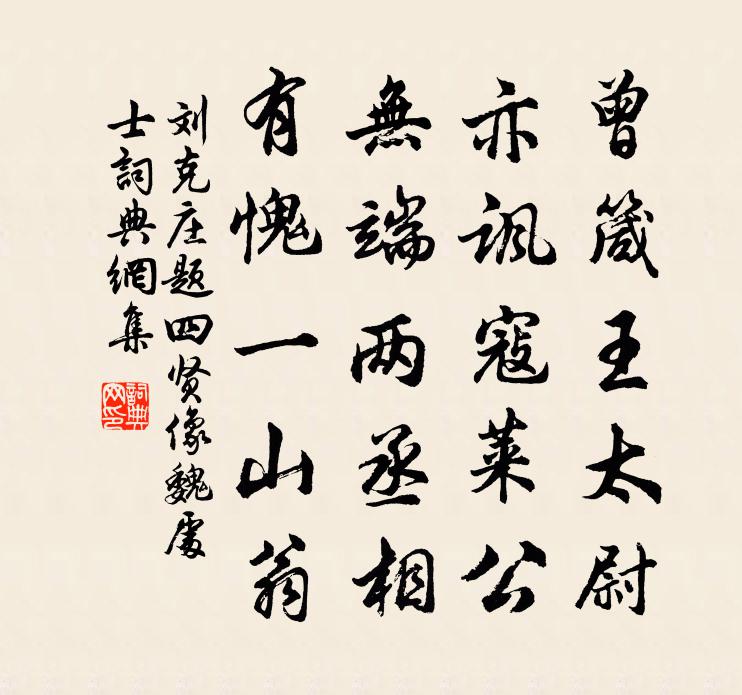 曾箴王太尉
亦讽寇莱公
無端两丞相
有愧一山翁
刘克庄题四贤像魏處
士詞典網集
詞典網印